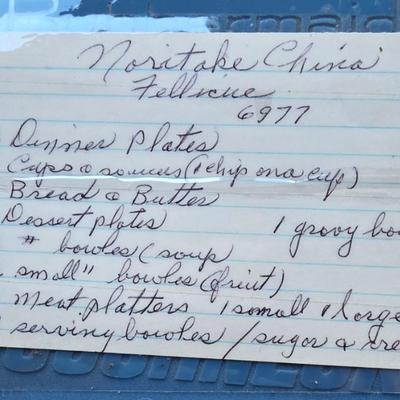 Noritake China
Fellicue
6977
Dinner Plates
Cups & saucers (1 chip on a cup)
Bread & Butter
Dessert plates 1 gravy bo
" bowles (soup
small" bowles (fruit)
meat platters 1 small 1 large
serving bowles / sugar & cre